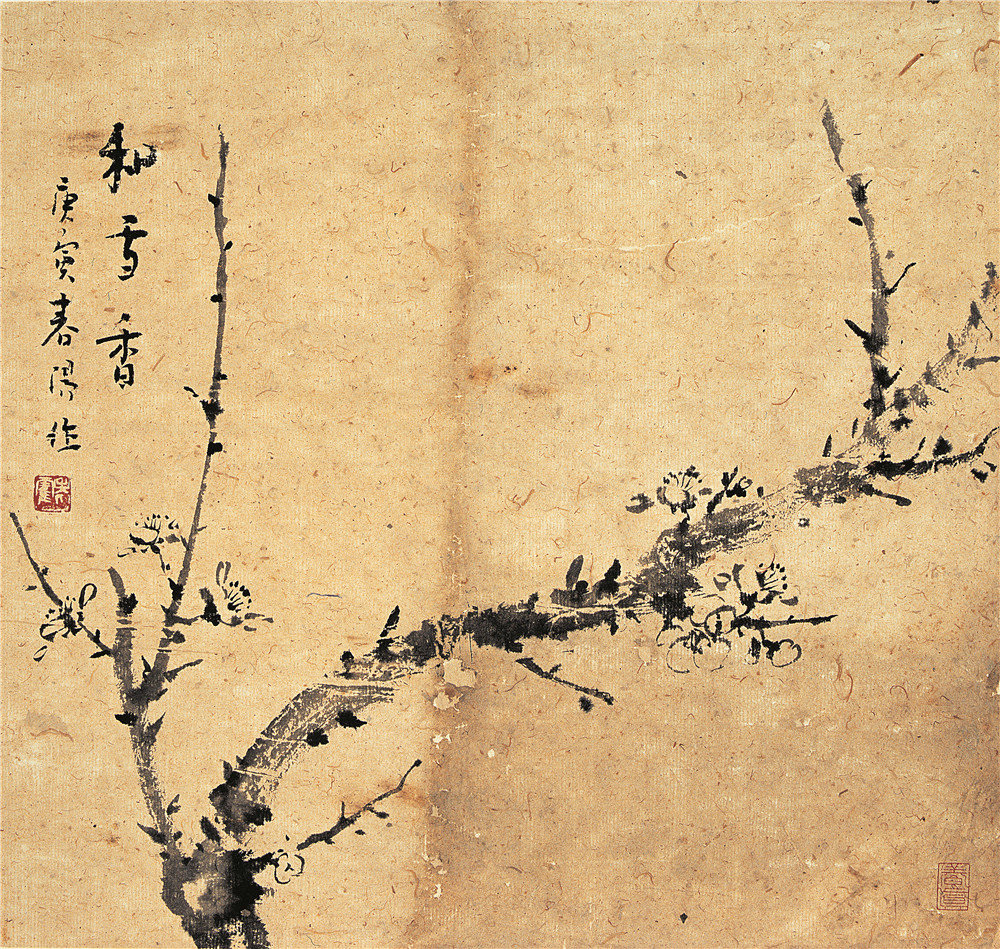 和雪香
庚寅春陽作